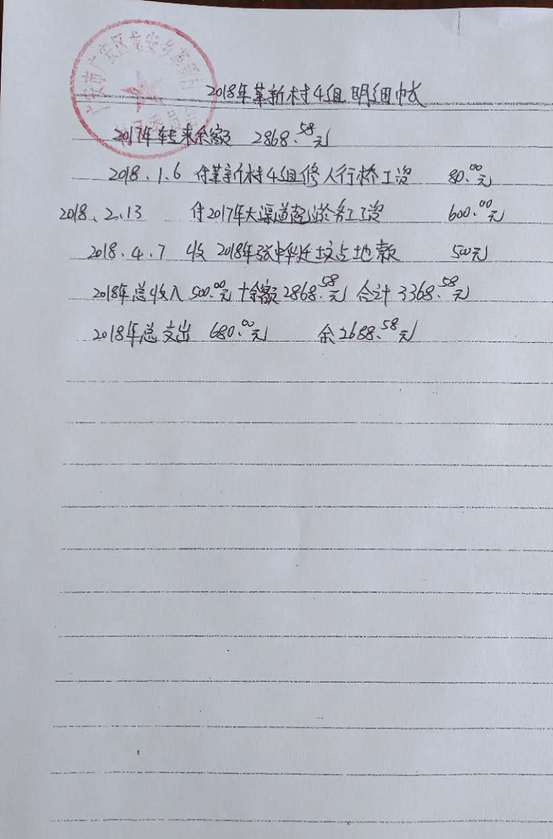 广安市广安区龙安乡革新村
2018年革新村4组明细帐
2017年转来余额 2868.58元
2018.1.6 付革新村4组修人行桥工资 80.00元
2018.2.13 付2017年大渠道 淤务工工资 600.00元
2018.4.7 收2018年张中华迁坟占地款 500元
2018年总收入500.00元+余额2868.58元 合计3368.58元
2018年总支出 680.00元 余2688.58元